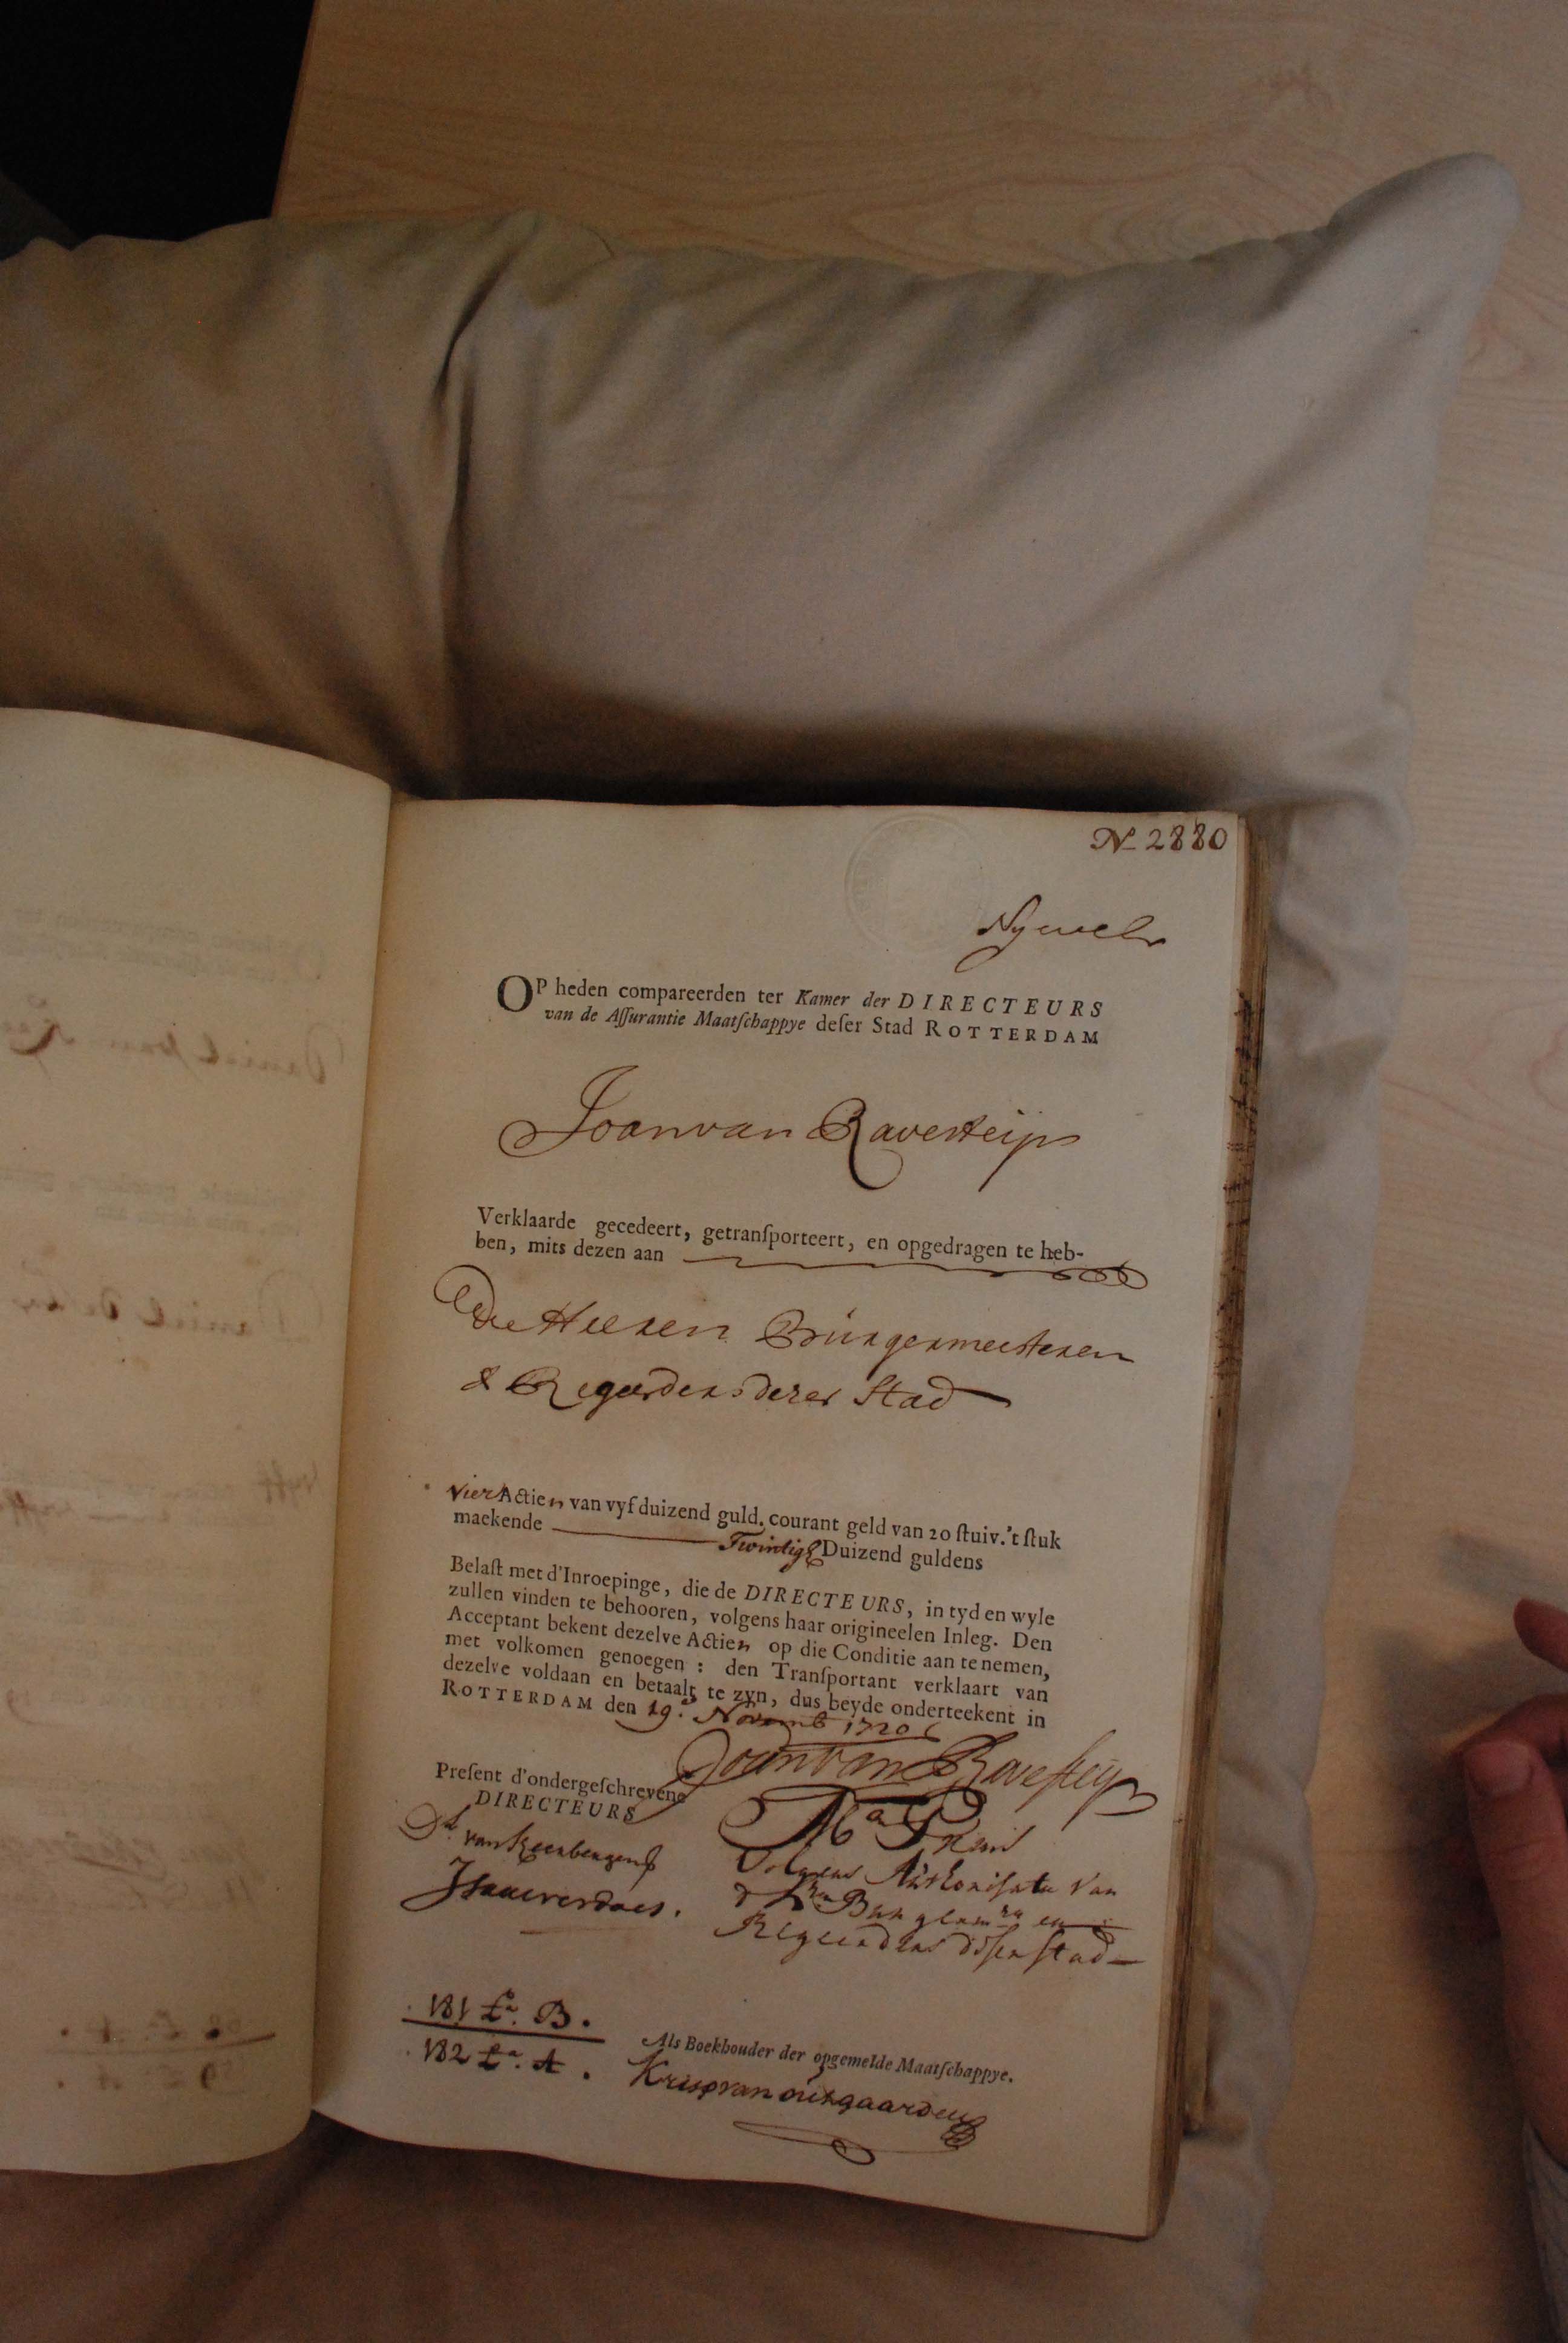 N. 2880
OP heden compareerden ter Kamer der DIRECTEURS
van de Aſſurantie Maatſchappye deſer Stad ROTTERDAM
Joan van Ravesteijn
Verklaarde gecedeert, getranſporteert, en opgedragen te heb-
ben, mits dezen aan
De Heeren Bürgermeesteren
& Regeerders dezer Stad
vier Actien van vyf duizend guld. courant geld van 20 ſtuiv. 't ſtuk
maekende Twintigh Duizend guldens
Belaſt met d'Inroepinge, die de DIRECTEURS, in tyd en wyle
zullen vinden te behooren, volgens haar origineelen Inleg. Den
Acceptant bekent dezelve Actien op die Conditie aan te nemen,
met volkomen genoegen: den Tranſportant verklaart van
dezelve voldaan en betaalt te zyn, dus beyde onderteekent in
ROTTERDAM den 19. Novemb 1720
Joan van Ravesteijn
Preſent d'ondergeſchrevene
DIRECTEURS
Volgens Authorisatie van
Regeerders deser stad
181 La. B.
182 La. A.
Als Boekhouder der opgemelde Maatſchappye.